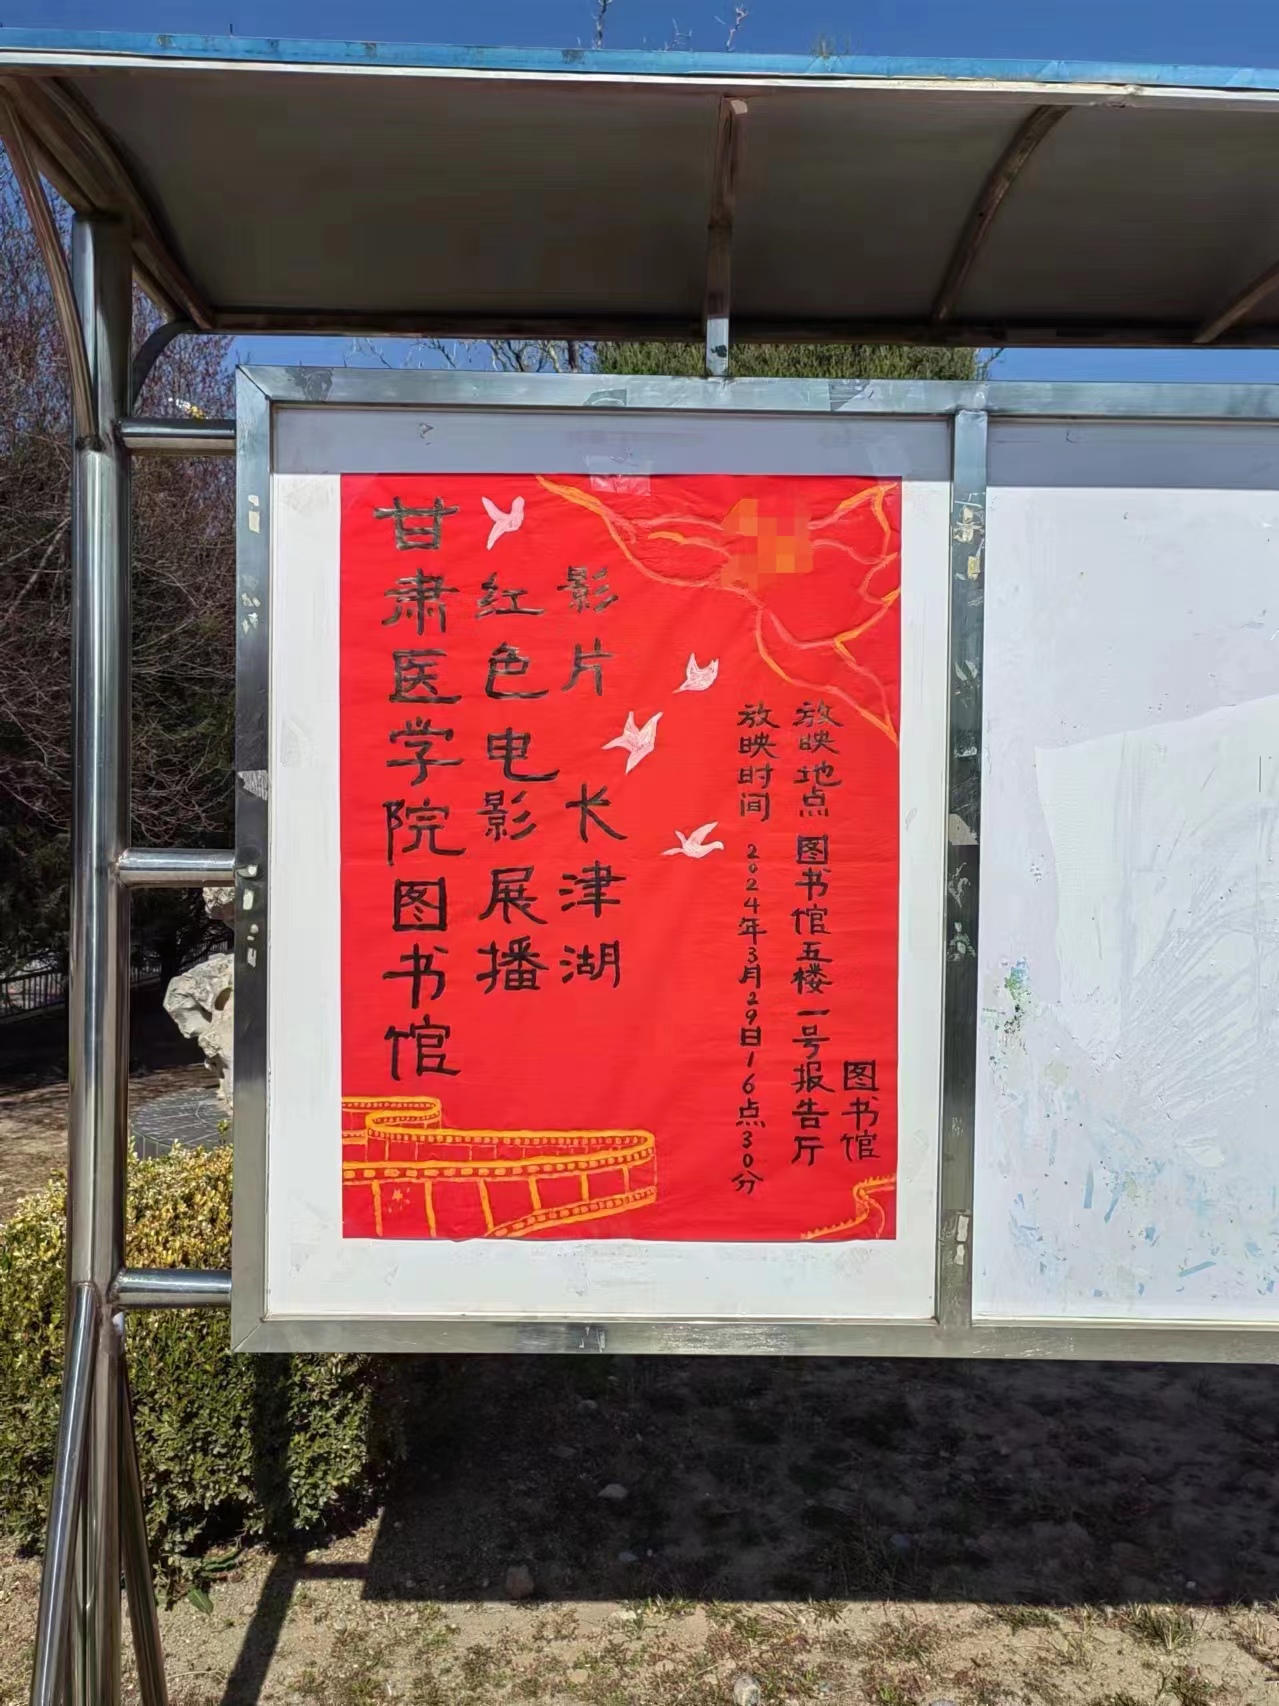 甘肃医学院图书馆
红色电影展播
影片 长津湖
放映时间 2024年3月29日16点30分
放映地点 图书馆五楼一号报告厅
图书馆